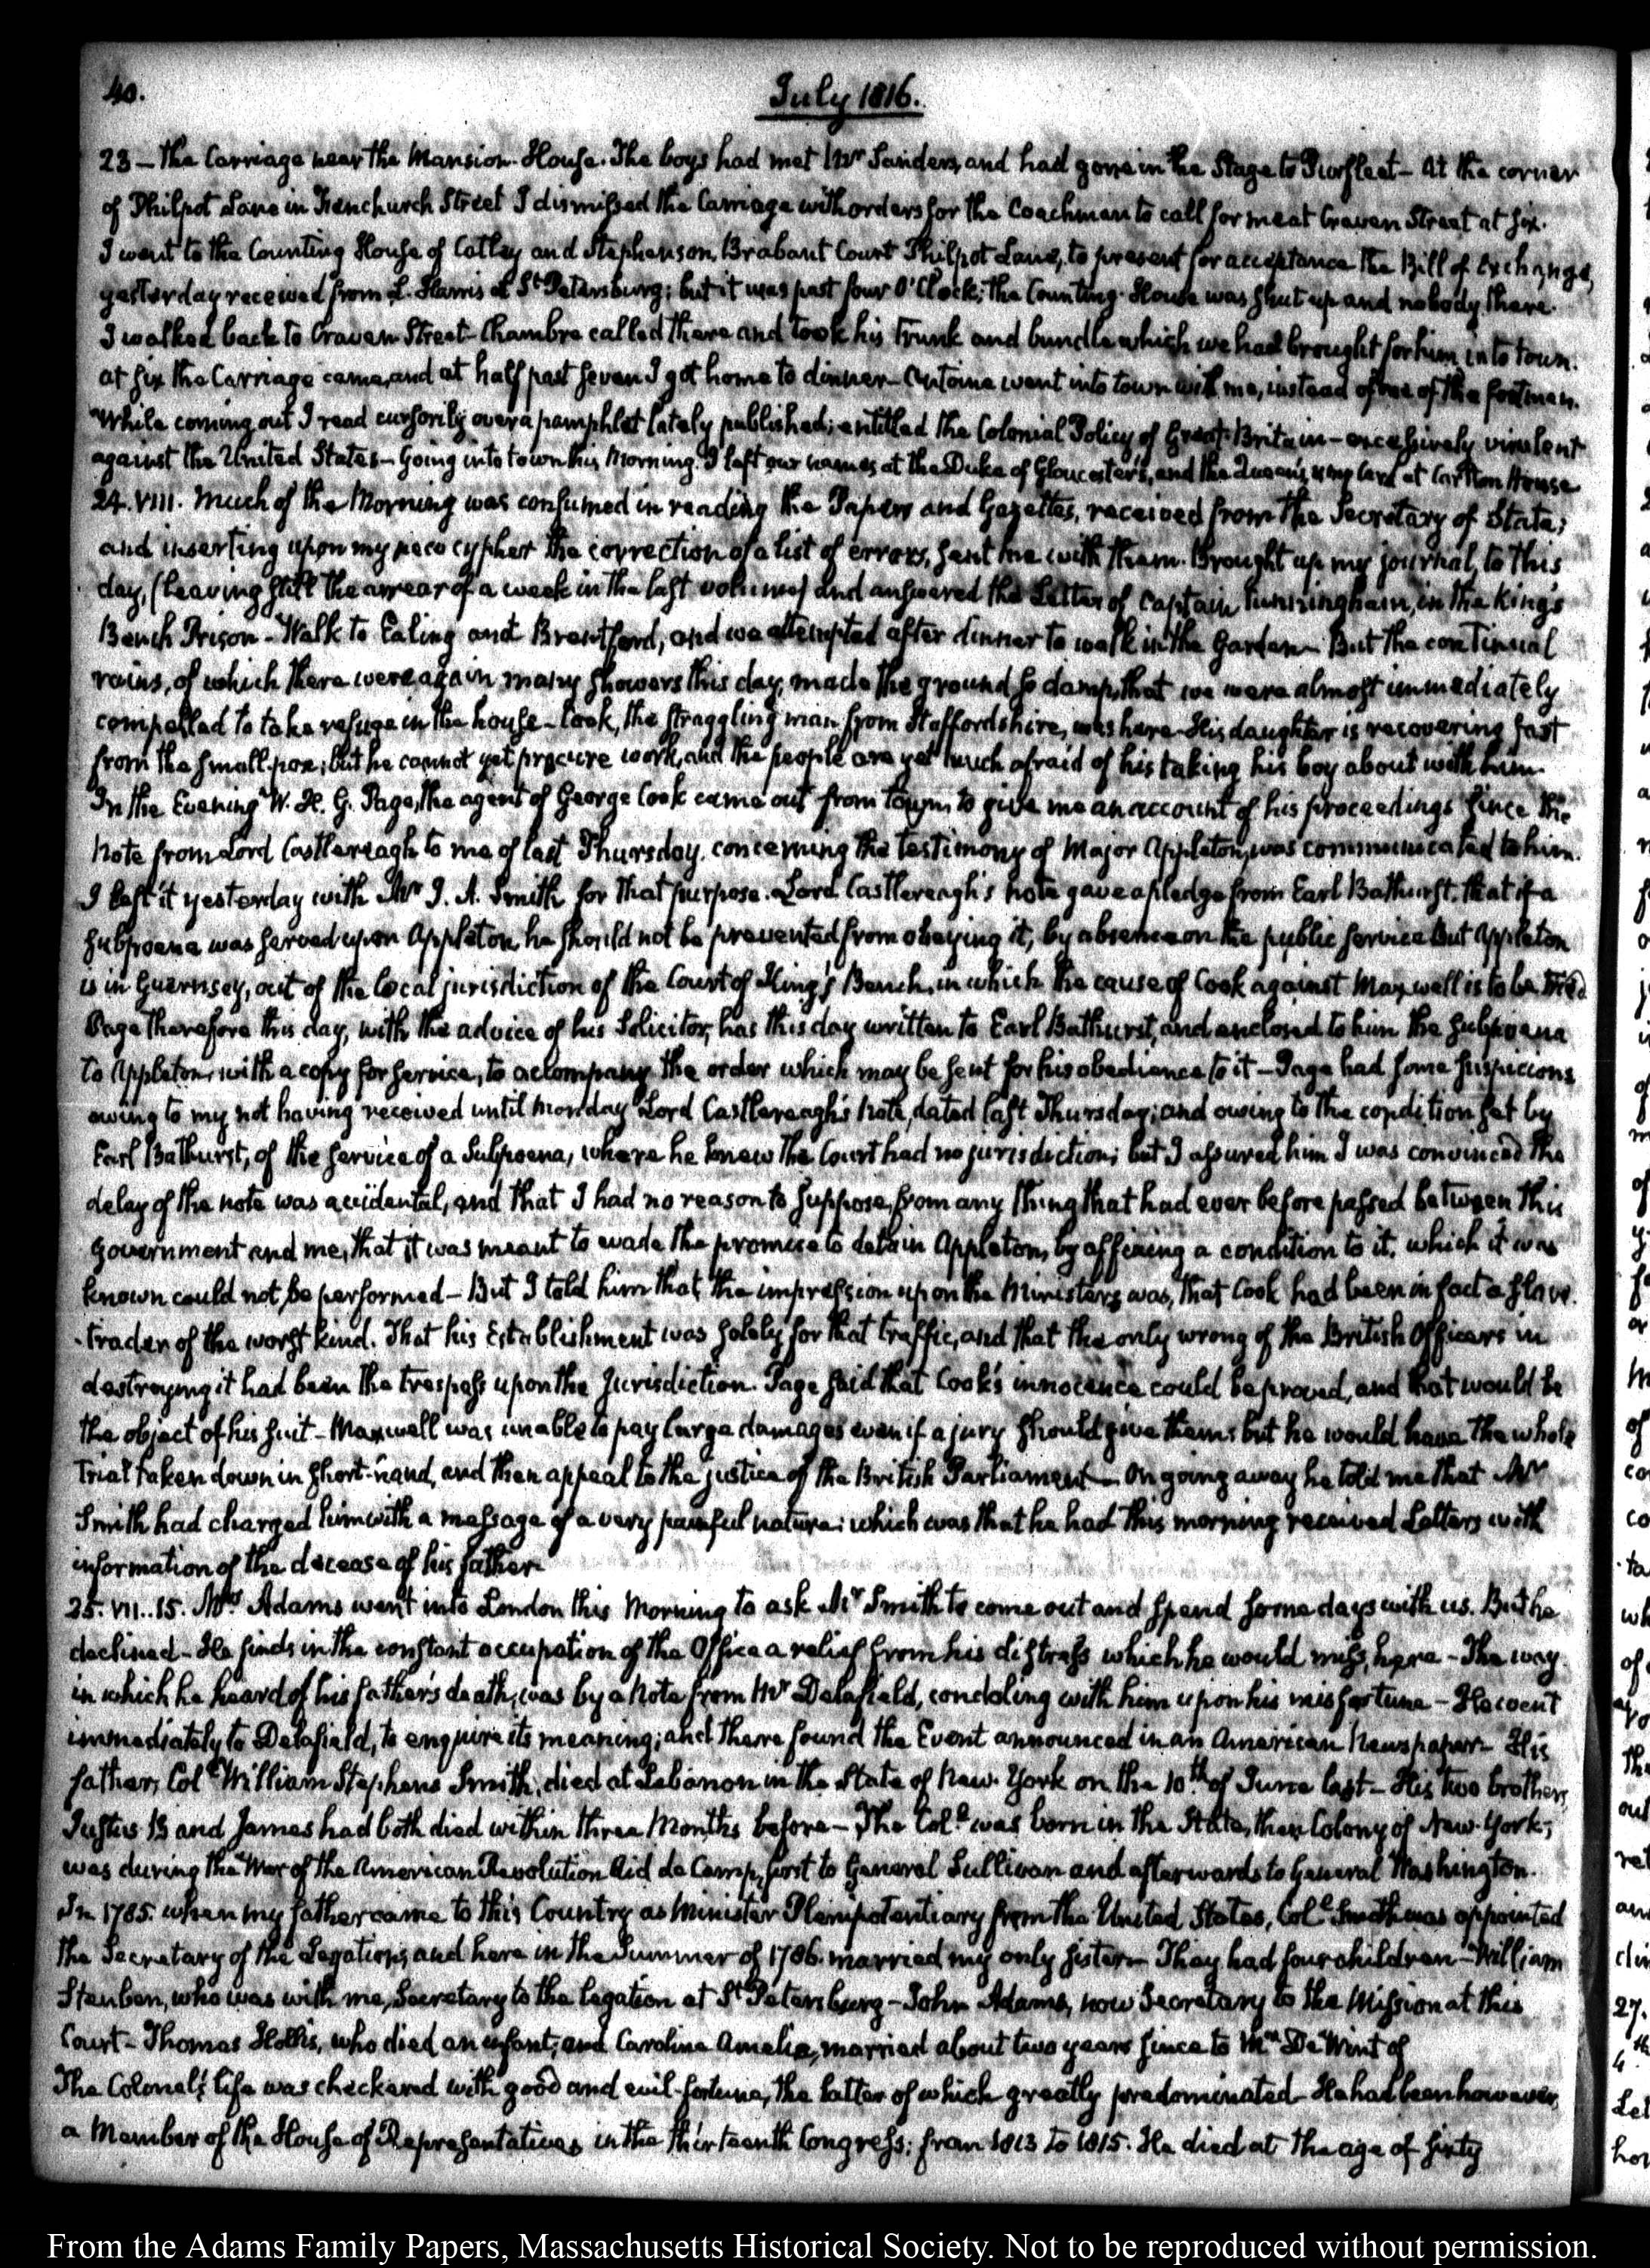 40.
July 1816.
23 — the Carriage near the Mansion-House. The boys had met Mr Sanders, and had gone in the Stage to Purfleet — At the corner
of Philpot Lane in Fenchurch Street I dismissed the Carriage with orders for the Coachman to call for me at Craven Street at six.
I went to the Counting House of Catley and Stephenson, Brabant Court Philpot Lane, to present for acceptance the Bill of exchange,
yesterday received from L. Harris at St Petersburg; but it was past four O'Clock; the Counting-House was shut up and nobody there.
I walked back to Craven-Street. Chambre called there and took his Trunk and bundle which we had brought for him into town.
at six the Carriage came, and at half past seven I got home to dinner — Antoine went into town with me, instead of one of the footmen.
While coming out I read cursorily over a pamphlet lately published; entitled the Colonial Policy of Great-Britain — excessively virulent
against the United States — Going into town this Morning, I left our names at the Duke of Gloucester's, and the Queen's, my card at Carlton House
24. VIII. Much of the Morning was consumed in reading the Papers and Gazettes, received from the Secretary of State;
and inserting upon my new cypher the correction of a list of errors, sent me with them. Brought up my journal, to this
day, (leaving still the arrear of a week in the last volume) and answered the Letter of Captain Cunningham, in the King's
Bench Prison — Walk to Ealing and Brentford, and we attempted after dinner to walk in the Garden — But the continual
rains, of which there were again many showers this day, made the ground so damp, that we were almost immediately
compelled to take refuge in the house — Cook, the straggling man from Staffordshire, was here — His daughter is recovering fast
from the small-pox; but he cannot yet procure work, and the people are yet much afraid of his taking his boy about with him.
In the Evening W. H. G. Page, the agent of George Cook came out from town, to give me an account of his proceedings since the
Note from Lord Castlereagh to me of last Thursday, concerning the testimony of Major Appleton, was communicated to him.
I left it yesterday with Mr J. A. Smith for that purpose. Lord Castlereagh's note gave a pledge from Earl Bathurst, that if a
subpoena was served upon Appleton, he should not be prevented from obeying it, by absence on the public service But Appleton
is in Guernsey, out of the local jurisdiction of the Court of King's Bench, in which the cause of Cook against Maxwell is to be tried
Page therefore this day, with the advice of his Solicitor, has this day written to Earl Bathurst, and enclosed to him the subpoena
to Appleton, with a copy for service, to accompany the order which may be sent for his obedience to it — Page had some suspicions
owing to my not having received until Monday Lord Castlereagh's Note, dated last Thursday; and owing to the condition set by
Earl Bathurst, of the service of a Subpoena, where he knew the Court had no jurisdiction; but I assured him I was convinced the
delay of the note was accidental, and that I had no reason to suppose, from any thing that had ever before passed between this
Government and me, that it was meant to evade the promise to detain Appleton, by affixing a condition to it, which it was
known could not be performed — But I told him that the impression upon the Ministers was, that Cook had been in fact a slave-
-trader of the worst kind. That his Establishment was solely for that traffic, and that the only wrong of the British Officers in
destroying it had been the trespass upon the Jurisdiction. Page said that Cook's innocence could be proved, and that would be
the object of his suit — Maxwell was unable to pay large damages even if a jury should give them; but he would have the whole
trial taken down in short-hand, and then appeal to the justice of the British Parliament — On going away he told me that Mr
Smith had charged him with a message of a very painful nature; which was that he had this morning received Letters with
information of the decease of his father.
25. VII..15. Mrs Adams went into London this Morning to ask Mr Smith to come out and spend some days with us. But he
declined — He finds in the constant occupation of the Office a relief from his distress which he would miss, here — The way
in which he heard of his father's death, was by a Note from Mr Delafield, condoling with him upon his misfortune — He went
immediately to Delafield, to enquire its meaning; and there found the Event announced in an American Newspaper — His
father, Coll William Stephens Smith, died at Lebanon in the State of New-York on the 10th of June last — His two brothers,
Justus B and James had both died within three Months before — The Coll was born in the State, then Colony of New-York;
was during the War of the American Revolution Aid de Camp, first to General Sullivan and afterwards to General Washington.
In 1785. when my father came to this Country as Minister Plenipotentiary from the United States, Coll Smith was appointed
the Secretary of the Legation; and here in the Summer of 1786. married my only sister — They had four children — William
Steuben, who was with me, Secretary to the legation at St Petersburg — John Adams, now Secretary to the Mission at this
Court — Thomas Hollis, who died an infant; and Caroline Amelia, married about two years since to Mr De Wint of
The Colonel's life was checkered with good and evil fortune, the latter of which greatly predominated — He had been however,
a Member of the House of Representatives in the thirteenth Congress; from 1813 to 1815. He died at the age of sixty
From the Adams Family Papers, Massachusetts Historical Society. Not to be reproduced without permission.